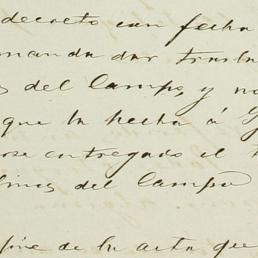 decreto con fecha
manda dar trasla
del Campo, y no
que la hecha á
ose entregado el
linos del Campo
de la acta que